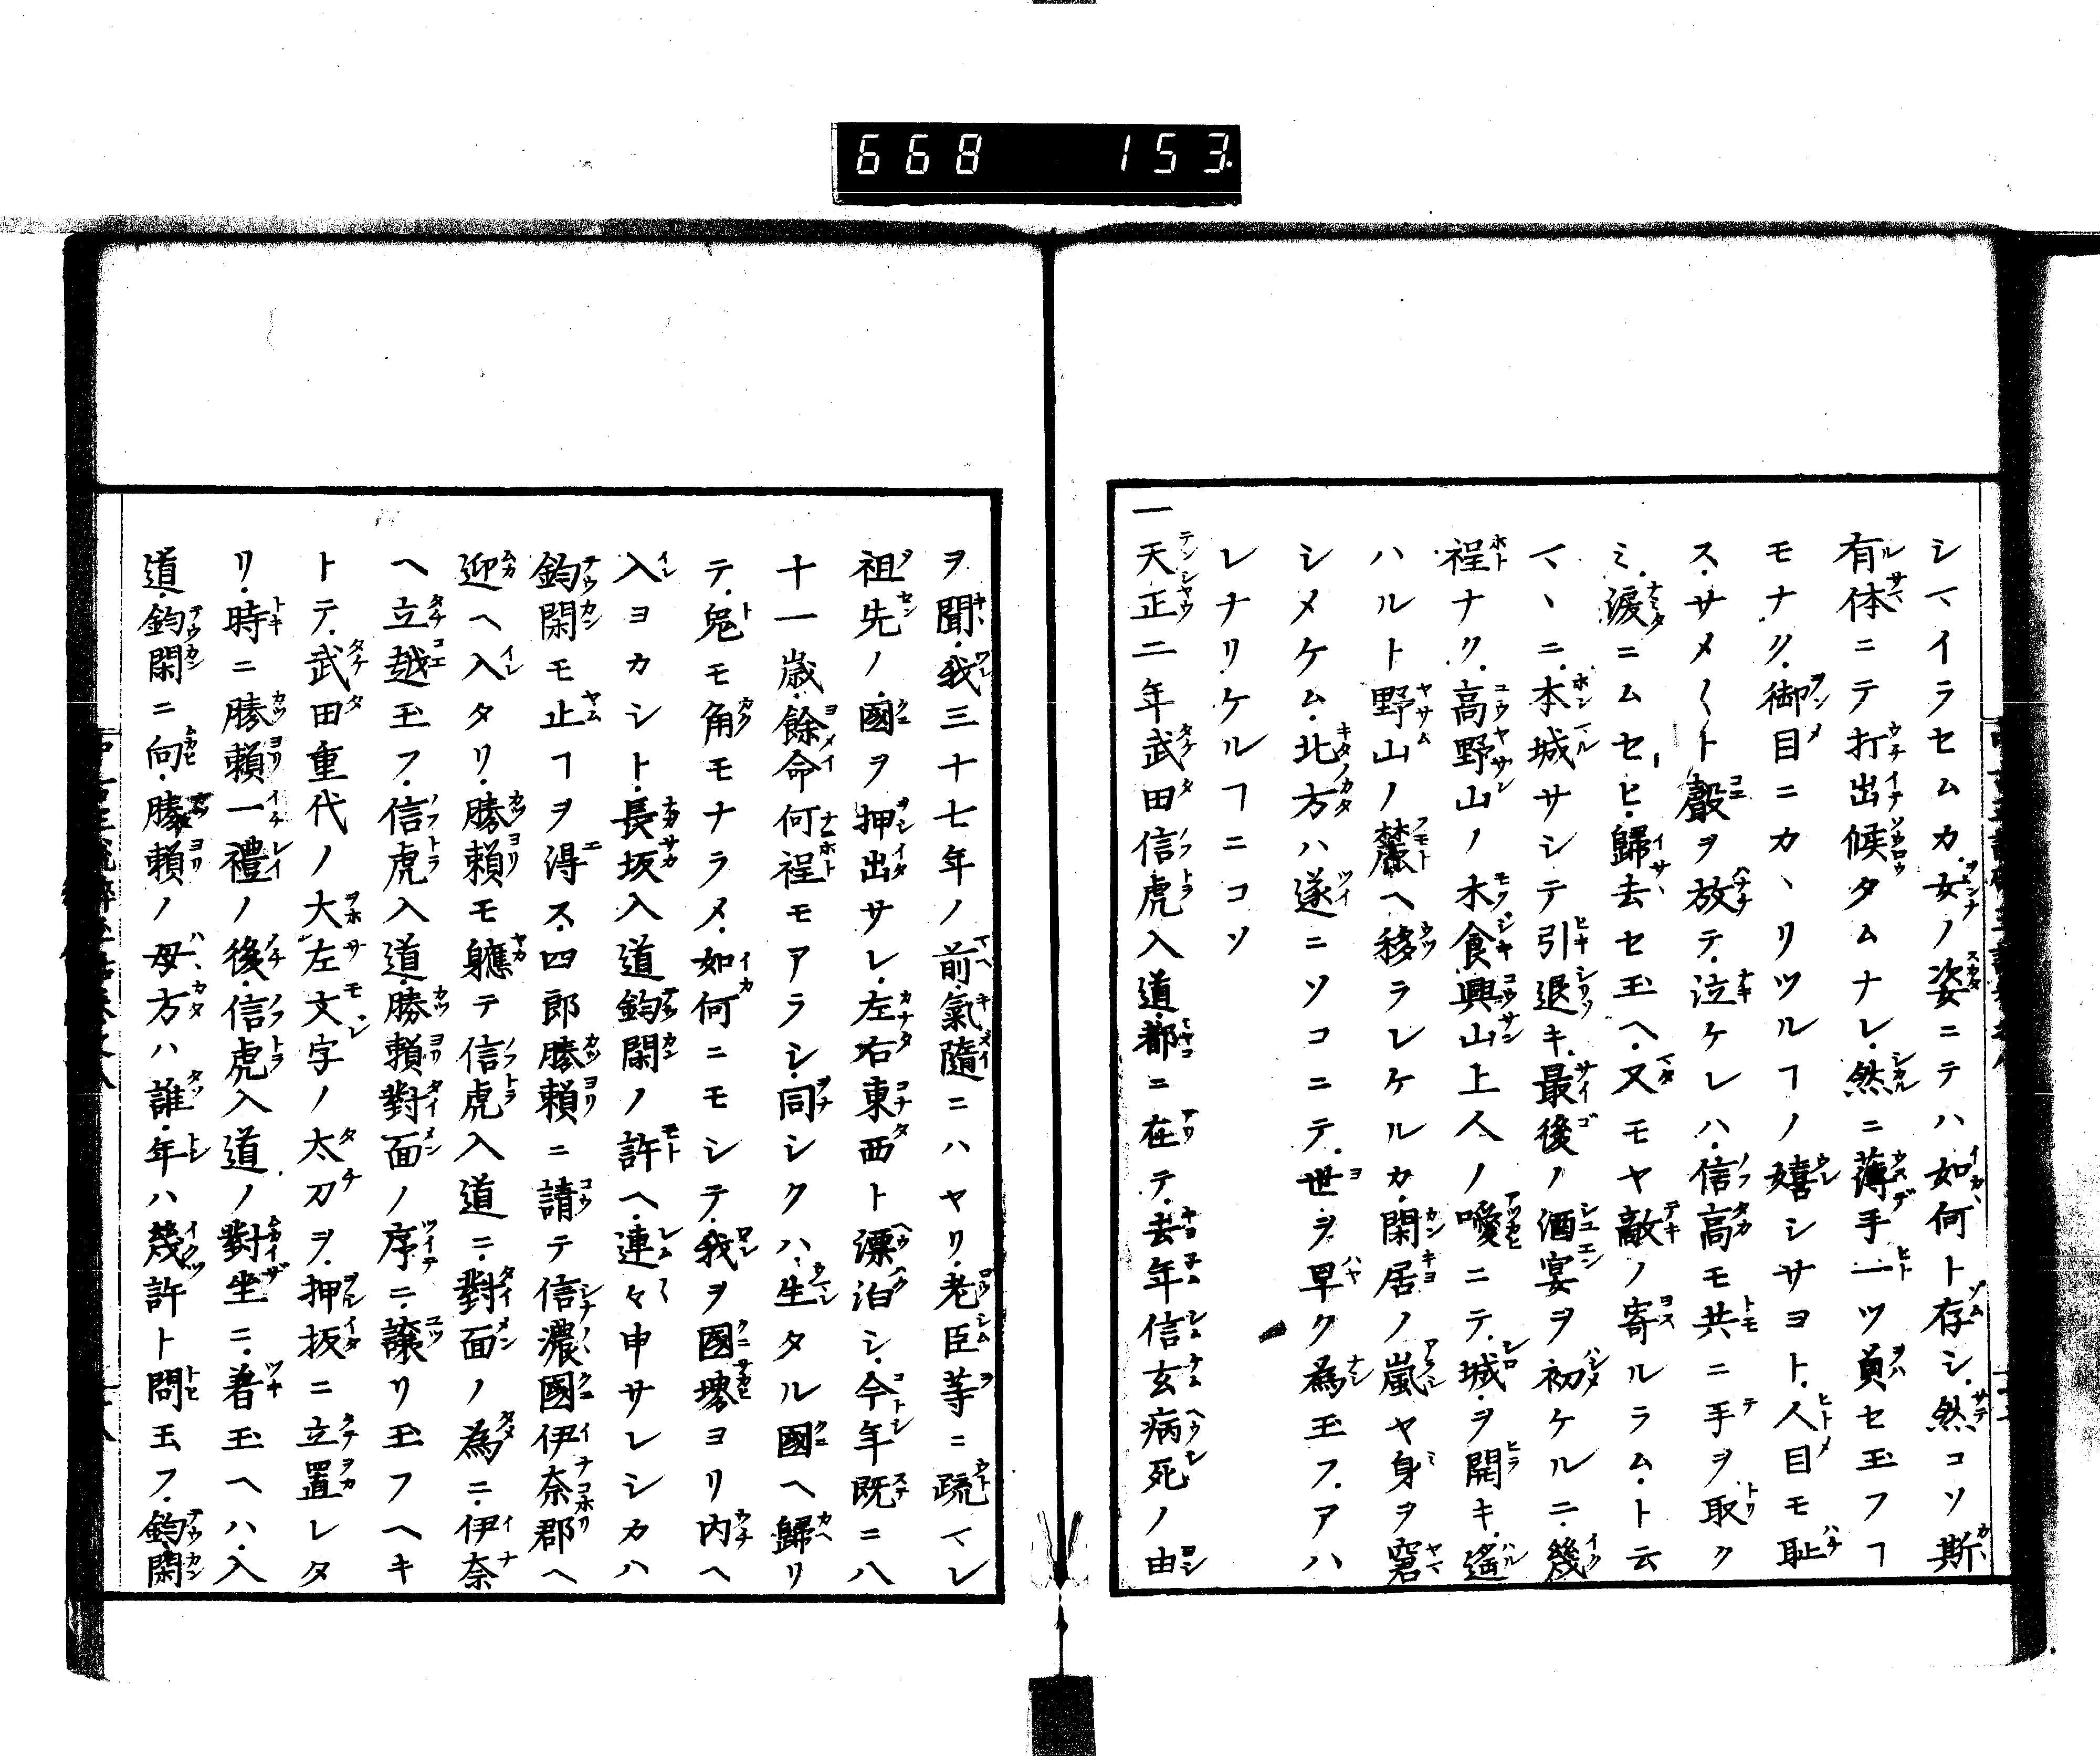 668 153
シマイラセムカ.女ノ姿ニテハ如何ト存シ.然コソ斯
有体ニテ打出候タムナレ.然ニ薄手一ツ負セ玉フヿ
モナク.御目ニカヽリツルヿノ嬉シサヨト.人目モ耻
ス.サメ〱ト聲ヲ放テ.泣ケレハ.信高モ共ニ手ヲ取ク
ミ.淚ニムセヒ.歸去セ玉ヘ.又モヤ敵ノ寄ルラム.ト云
マヽニ.本城サシテ引退キ.最後ノ酒宴ヲ初ケルニ.幾
程ナク.高野山ノ木食興山上人ノ噯ニテ.城ヲ開キ.遙
ハルト野山ノ麓ヘ移ラレケルカ.閑居ノ嵐ヤ身ヲ窘
シメケム.北方ハ遂ニソコニテ.世ヲ早ク為玉フ.アハ
レナリケルヿニコソ
一天正二年武田信虎入道.都ニ在テ.去年信玄病死ノ由
ヲ聞.我三十七年ノ前.氣隨ニハヤリ.老臣等ニ疏マレ
祖先ノ國ヲ押出サレ.左右東西ト漂泊シ.今年既ニ八
十一歳.餘命何程モアラシ.同シクハ.生タル國ヘ歸リ
テ.兎モ角モナラメ.如何ニモシテ.我ヲ國堺ヨリ内ヘ
入ヨカシト.長坂入道鈞閑ノ許ヘ.連々申サレシカハ
鈞閑モ止ヿヲ得ス.四郎勝頼ニ請テ信濃國伊奈郡ヘ
迎ヘ入タリ.勝頼モ軈テ信虎入道ニ.對面ノ為ニ.伊奈
ヘ立越玉フ.信虎入道.勝頼對面ノ序ニ.譲リ玉フヘキ
トテ.武田重代ノ大左文字ノ太刀ヲ.押板ニ立置レタ
リ.時ニ勝頼一禮ノ後.信虎入道ノ對坐ニ.着玉ヘハ.入
道.鈞閑ニ向.勝頼ノ母方ハ誰.年ハ幾許ト問玉フ.鈞閑